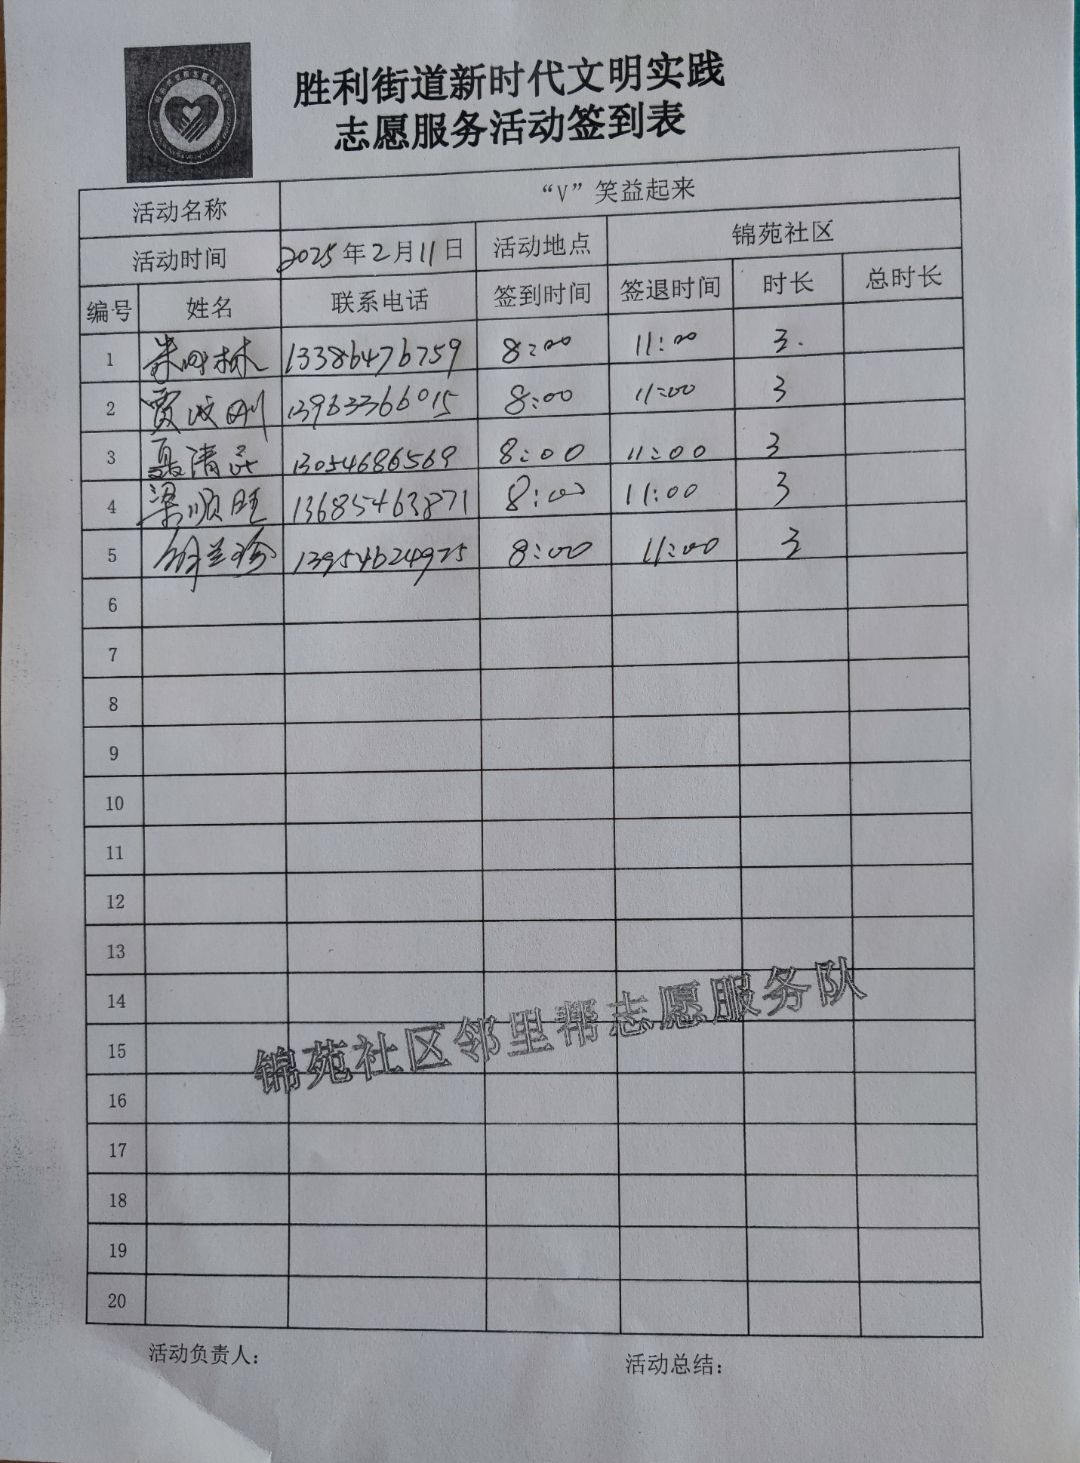 胜利街道新时代文明实践
志愿服务活动签到表
活动名称 “V”笑益起来
活动时间 2025年2月11日 活动地点 锦苑社区
编号 姓名 联系电话 签到时间 签退时间 时长 总时长
1 13386476759 8:00 11:00 3.
2 13963366015 8:00 11:00 3
3 13054686569 8:00 11:00 3
4 梁顺胜 13685463871 8:00 11:00 3
5 13954624975 8:00 11:00 3
6
7
8
9
10
11
12
13
14
15
锦苑社区邻里帮志愿服务队
16
17
18
19
20
活动负责人： 活动总结：